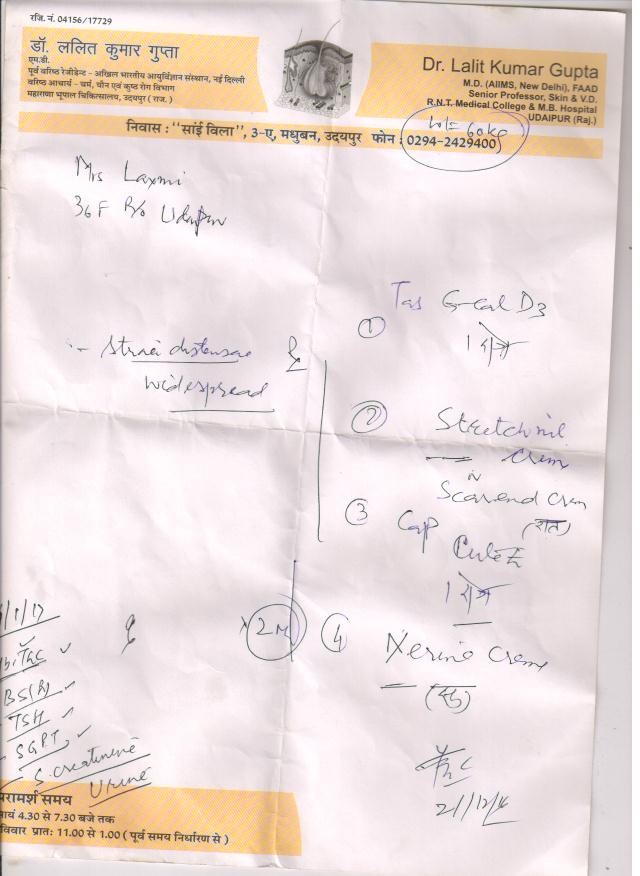 रजि. नं. 04156/17729
डॉ. ललित कुमार गुप्ता
एम.डी.
पूर्व वरिष्ठ रेजीडेन्ट - अखिल भारतीय आयुर्विज्ञान संस्थान, नई दिल्ली
वरिष्ठ आचार्य - चर्म, यौन एवं कुष्ठ रोग विभाग
महाराणा भूपाल चिकित्सालय, उदयपुर ( राज. )
Dr. Lalit Kumar Gupta
M.D. (AIIMS, New Delhi), FAAD
Senior Professor, Skin & V.D.
R.N.T. Medical College & M.B. Hospital
UDAIPUR (Raj.)
निवास : "सांई विला", 3-ए, मधुबन, उदयपुर फोन : 0294-2429400
wt= 60kg
Mrs Laxmi
36 F R/o Udaipur
Striae distensae
widespread
① Tab G-cal D3
1 रोज
② Stretchnil
Crem
Scarend Crem
(रात)
③ Cap
1 रोज
2 M
④ Xerina Crem
21/12/16
BS(R)
TSH
SGPT
S. creatinine
Urine
परामर्श समय
सायं 4.30 से 7.30 बजे तक
रविवार प्रातः 11.00 से 1.00 ( पूर्व समय निर्धारण से )